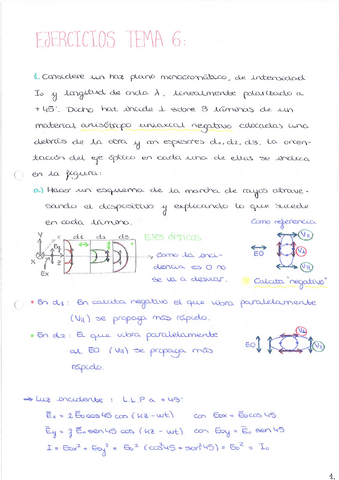 EJERCICIOS TEMA 6:
1. Considere un haz plano monocromático, de intensidad
I₀ y longitud de onda λ, linealmente polarizado a
+45°. Dicho haz incide ⊥ sobre 3 láminas de un
material anisótropo uniaxial negativo colocadas una
detrás de la otra y con espesores d₁, d₂, d₃. La orien-
tación del eje óptico en cada una de ellas se indica
en la figura:
a) Hacer un esquema de la marcha de rayos atrave-
sando el dispositivo y explicando lo que sucede
en cada lámina.
Como referencia
Y d1 d2 d3 EJES ÓPTICOS
X Ey Z
Ex
→ Como la inci-
dencia es 0 no
se va a desviar.
EO V∥ V⊥ V∥
Calcita "negativo"
• En d₁: En calcita negativo el que vibra paralelamente
(V∥) se propaga más rápido.
• En d₂: El que vibra paralelamente
al EO (V∥) se propaga más
rápido.
EO V⊥ V∥
→ Luz incidente: L.L.P a +45°
Ex = E₀ cos45 cos (kz - wt) con E₀x = E₀ cos 45
Ey = E₀ sen 45 cos (kz - wt) con E₀y = E₀ sen 45
I = E₀x² + E₀y² = E₀² (cos²45 + sen²45) = E₀² = I₀
1.